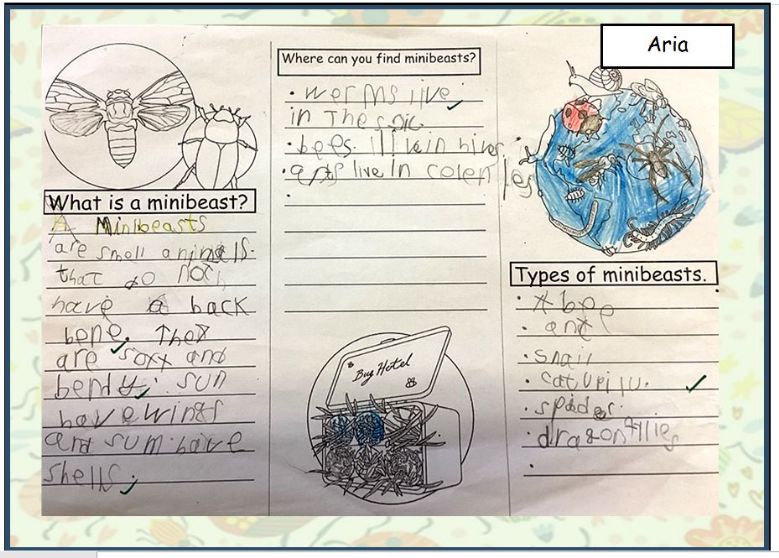 Aria
What is a minibeast?
A Minibeasts
are small animals.
that do not
have a back
bone. They
are soft and
bendy. sum
have wings
and sum have
shells.
Where can you find minibeasts?
• worms live
in the
• bees live in hives
• ants live in colenies.
Bug Hotel
Types of minibeasts.
• A bee
• ant
• snail
• catupilu.
• spider.
• dragonflies